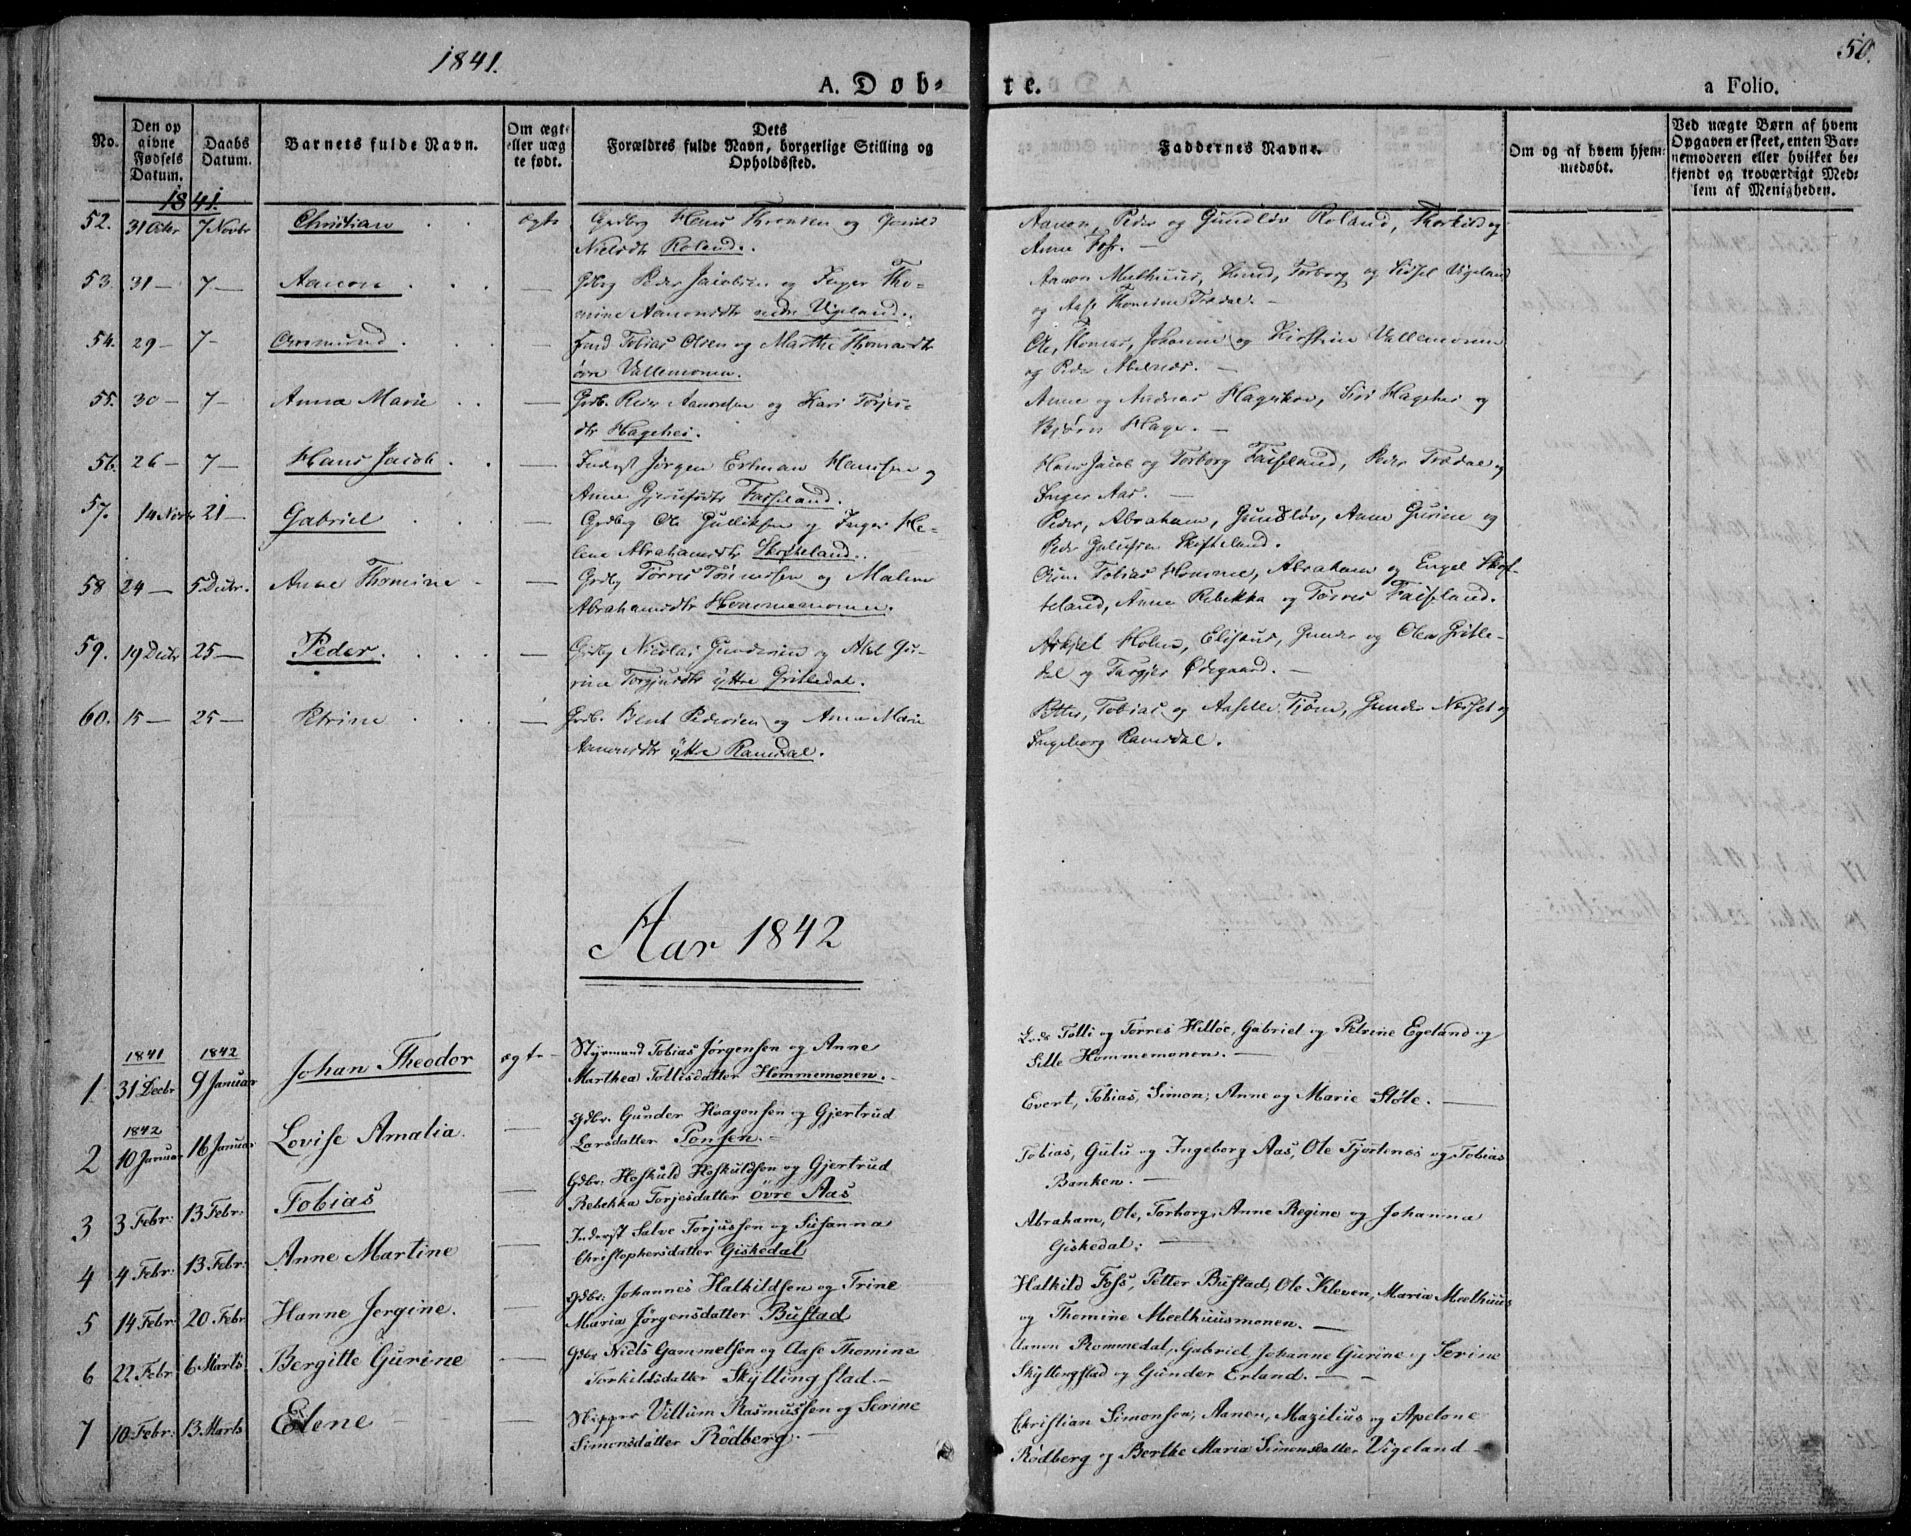 1841.
50.
A. Døb-
te.
a Folio.
No.
Den op
givne
Fødsels
Datum.
Daabs
Datum.
Barnets fulde Navn.
Om ægte
eller uæg
te født.
Dets
Forældres fulde Navn, borgerlige Stilling og
Opholdssted.
Faddernes Navne.
Om og af hvem hjem-
medøbt.
Ved uægte Børn af hvem
Opgaven er skeet, enten Bar-
nemoderen eller hvilket be-
kjendt og troværdigt Med-
lem af Menigheden.
1841.
52. 31 Octbr 7 Novbr Christian ægte Grdbg Hans og
Nielsdtr Roland.
Aanen, Peder og Gundløv Roland, Thorkild og
Anne Foss. —
53. 31 — 7 — Aanon — Gdbg Peder Jacobsen og Inger Tho-
mine Aanonsdtr nedre Vigeland.
Aanon Mælhuus, Torborg og Sidsel Vigeland
og Aase Thomine Trædal. —
54. 29 — 7 — Osmund — Tobias Olsen og Marthe Thomasdtr
øvre Vallemonen.
Ole, Thomas, Johanne og Kirstine Vallemonen
og Peder —
55. 30 — 7 — Anna Marie — Grdb. Peder Aanonsen og Kari Torjus-
dtr Hagehei.
Anne og Andreas Hageskov, Siri Hagehei og
Bjørn Hage. —
56. 26 — 7 — Hans Jacob — Inderst Jørgen Erhman Hanssen og
Anne Faiseland.
Hans Jacob og Torborg Faiseland, Peder Trædal og
Inger Aas. —
57. 14 Novbr 21 — Gabriel — Grdbg Ole Gulliksen og Inger He-
lene Abrahamsdtr Skofteland.
Peder, Abraham, Gundløv, Anne Gurine og
Peder Skofteland.
58 24 — 5 Decbr. Anne Thomine — Grdbg Tørres Tønnessen og Malene
Abrahamsdtr Hommemonen.
Tobias Homme, Abraham og Engel Skof-
teland, Anne Rebekka og Tørres Faiseland.
59. 19 Decbr 25 — Peder. — Grdbg Nicolai Gundersen og Abel Gu-
rine Torgjusdtr yttre Gritledal.
Holm, Elisæus, Gunder og Olea Gritle-
dal og Targjer Ødegaard. —
60. 15 — 25 — Petrine — Grdb. Bent Pedersen og Anne Marie
Aanonsdtr yttre Ramsdal.
Petter, Tobias og Aaselle Tjøm, Gunder Neset og
Ingeborg Ramsdal.
Aar 1842
1841 1842
1 31 Decbr 9 Januar Johan Theodor ægte — Styrmand Tobias Jørgensen og Anne
Marthea Tollisdatter Hommemonen. —
Lods Tolli og Torres Hilløe, Gabriel og Petrine Egeland og
Sille Hommemonen. —
1842
2 10 Januar 16 Januar Lovise Amalia. — Gdbr. Gunder Haagensen og Gjertrud
Larsdatter Ponsen. —
Evert, Tobias, Simon, Anne og Marie Støle. —
3 3 Febr: 13 Febr: Tobias — Gdbr: Hoskuld Hoskuldsen og Gjertrud
Rebekka Torjesdatter øvre Aas
Tobias, Gulu og Ingeborg Aas, Ole Tjortenes og Tobias
Banken. —
4 4 Febr: 13 Febr: Anne Martine — Inderst Salve Torjussen og Susanna
Christophersdatter Giskedal
Abraham, Ole, Torborg, Anne Regine og Johanna
Giskedal; —
5 14 Febr: 20 Febr: Hanne Jorgine. — Gdbr: Johannes Halkildsen og Trine
Maria Jørgensdatter Bustad
Halkild Foss, Petter Bustad, Ole Kleven, Maria Moelhuus
og Thomine Moelhuusmonen. —
6 22 Febr 6 Marts Bergitte Gurine — Gdbr Niels Gammelsen og Aase Thomine
Torkildsdatter Skyllingstad. —
Aanon Rommedal, Gabriel, Johanne Gurine og Serine
Skyllingstad og Gunder Erland. —
7 10 Febr: 13 Marts Elene — Skipper Villum Rasmussen og Serine
Simonsdatter Rødberg. —
Christian Simonsen, Aanen, Mazilius og Apelone
Rødberg og Berthe Maria Simonsdatter Vigeland —